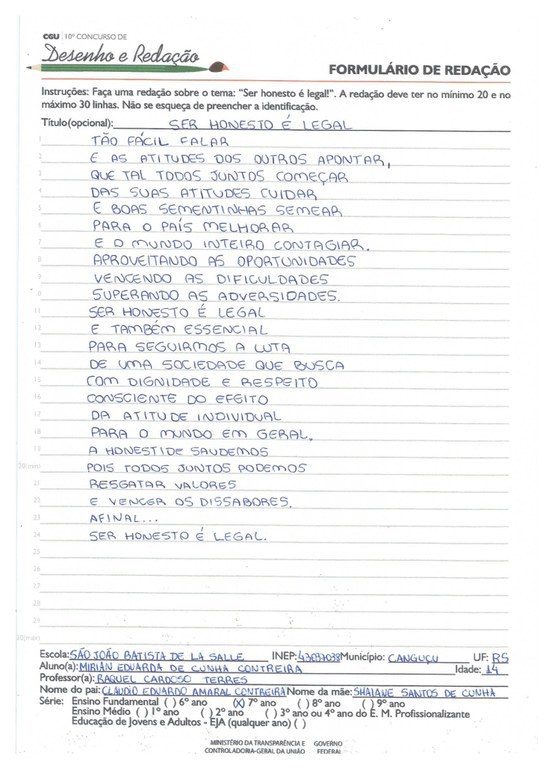 CGU | 10º CONCURSO DE
Desenho e Redação
FORMULÁRIO DE REDAÇÃO
Instruções: Faça uma redação sobre o tema: "Ser honesto é legal!". A redação deve ter no mínimo 20 e no
máximo 30 linhas. Não se esqueça de preencher a identificação.
Título(opcional): SER HONESTO É LEGAL
1 TÃO FÁCIL FALAR
2 E AS ATITUDES DOS OUTROS APONTAR,
3 QUE TAL TODOS JUNTOS COMEÇAR
4 DAS SUAS ATITUDES CUIDAR
5 E BOAS SEMENTINHAS SEMEAR
6 PARA O PAÍS MELHORAR
7 E O MUNDO INTEIRO CONTAGIAR.
8 APROVEITANDO AS OPORTUNIDADES
9 VENCENDO AS DIFICULDADES
10 SUPERANDO AS ADVERSIDADES.
11 SER HONESTO É LEGAL
12 E TAMBÉM ESSENCIAL
13 PARA SEGUIRMOS A LUTA
14 DE UMA SOCIEDADE QUE BUSCA
15 COM DIGNIDADE E RESPEITO
16 CONSCIENTE DO EFEITO
17 DA ATITUDE INDIVIDUAL
18 PARA O MUNDO EM GERAL.
19 A HONESTIDE SAUDEMOS
20(mín) POIS TODOS JUNTOS PODEMOS
21 RESGATAR VALORES
22 E VENCER OS DISSABORES.
23 AFINAL...
24 SER HONESTO É LEGAL.
25
26
27
28
29
30(máx)
Escola: SÃO JOÃO BATISTA DE LA SALLE INEP: Município: CANGUÇU UF: RS
Aluno(a): MIRIÃN EDUARDA DE CUNHA CONTREIRA Idade: 14
Professor(a): RAQUEL CARDOSO TERRES
Nome do pai: CLAUDIO EDUARDO AMARAL CONTREIRA Nome da mãe: SHAIANE SANTOS DE CUNHA
Série: Ensino Fundamental ( ) 6º ano (X) 7º ano ( ) 8º ano ( ) 9º ano
Ensino Médio ( ) 1º ano ( ) 2º ano ( ) 3º ano ou 4º ano do E. M. Profissionalizante
Educação de Jovens e Adultos - EJA (qualquer ano) ( )
MINISTÉRIO DA TRANSPARÊNCIA E GOVERNO
CONTROLADORIA-GERAL DA UNIÃO FEDERAL